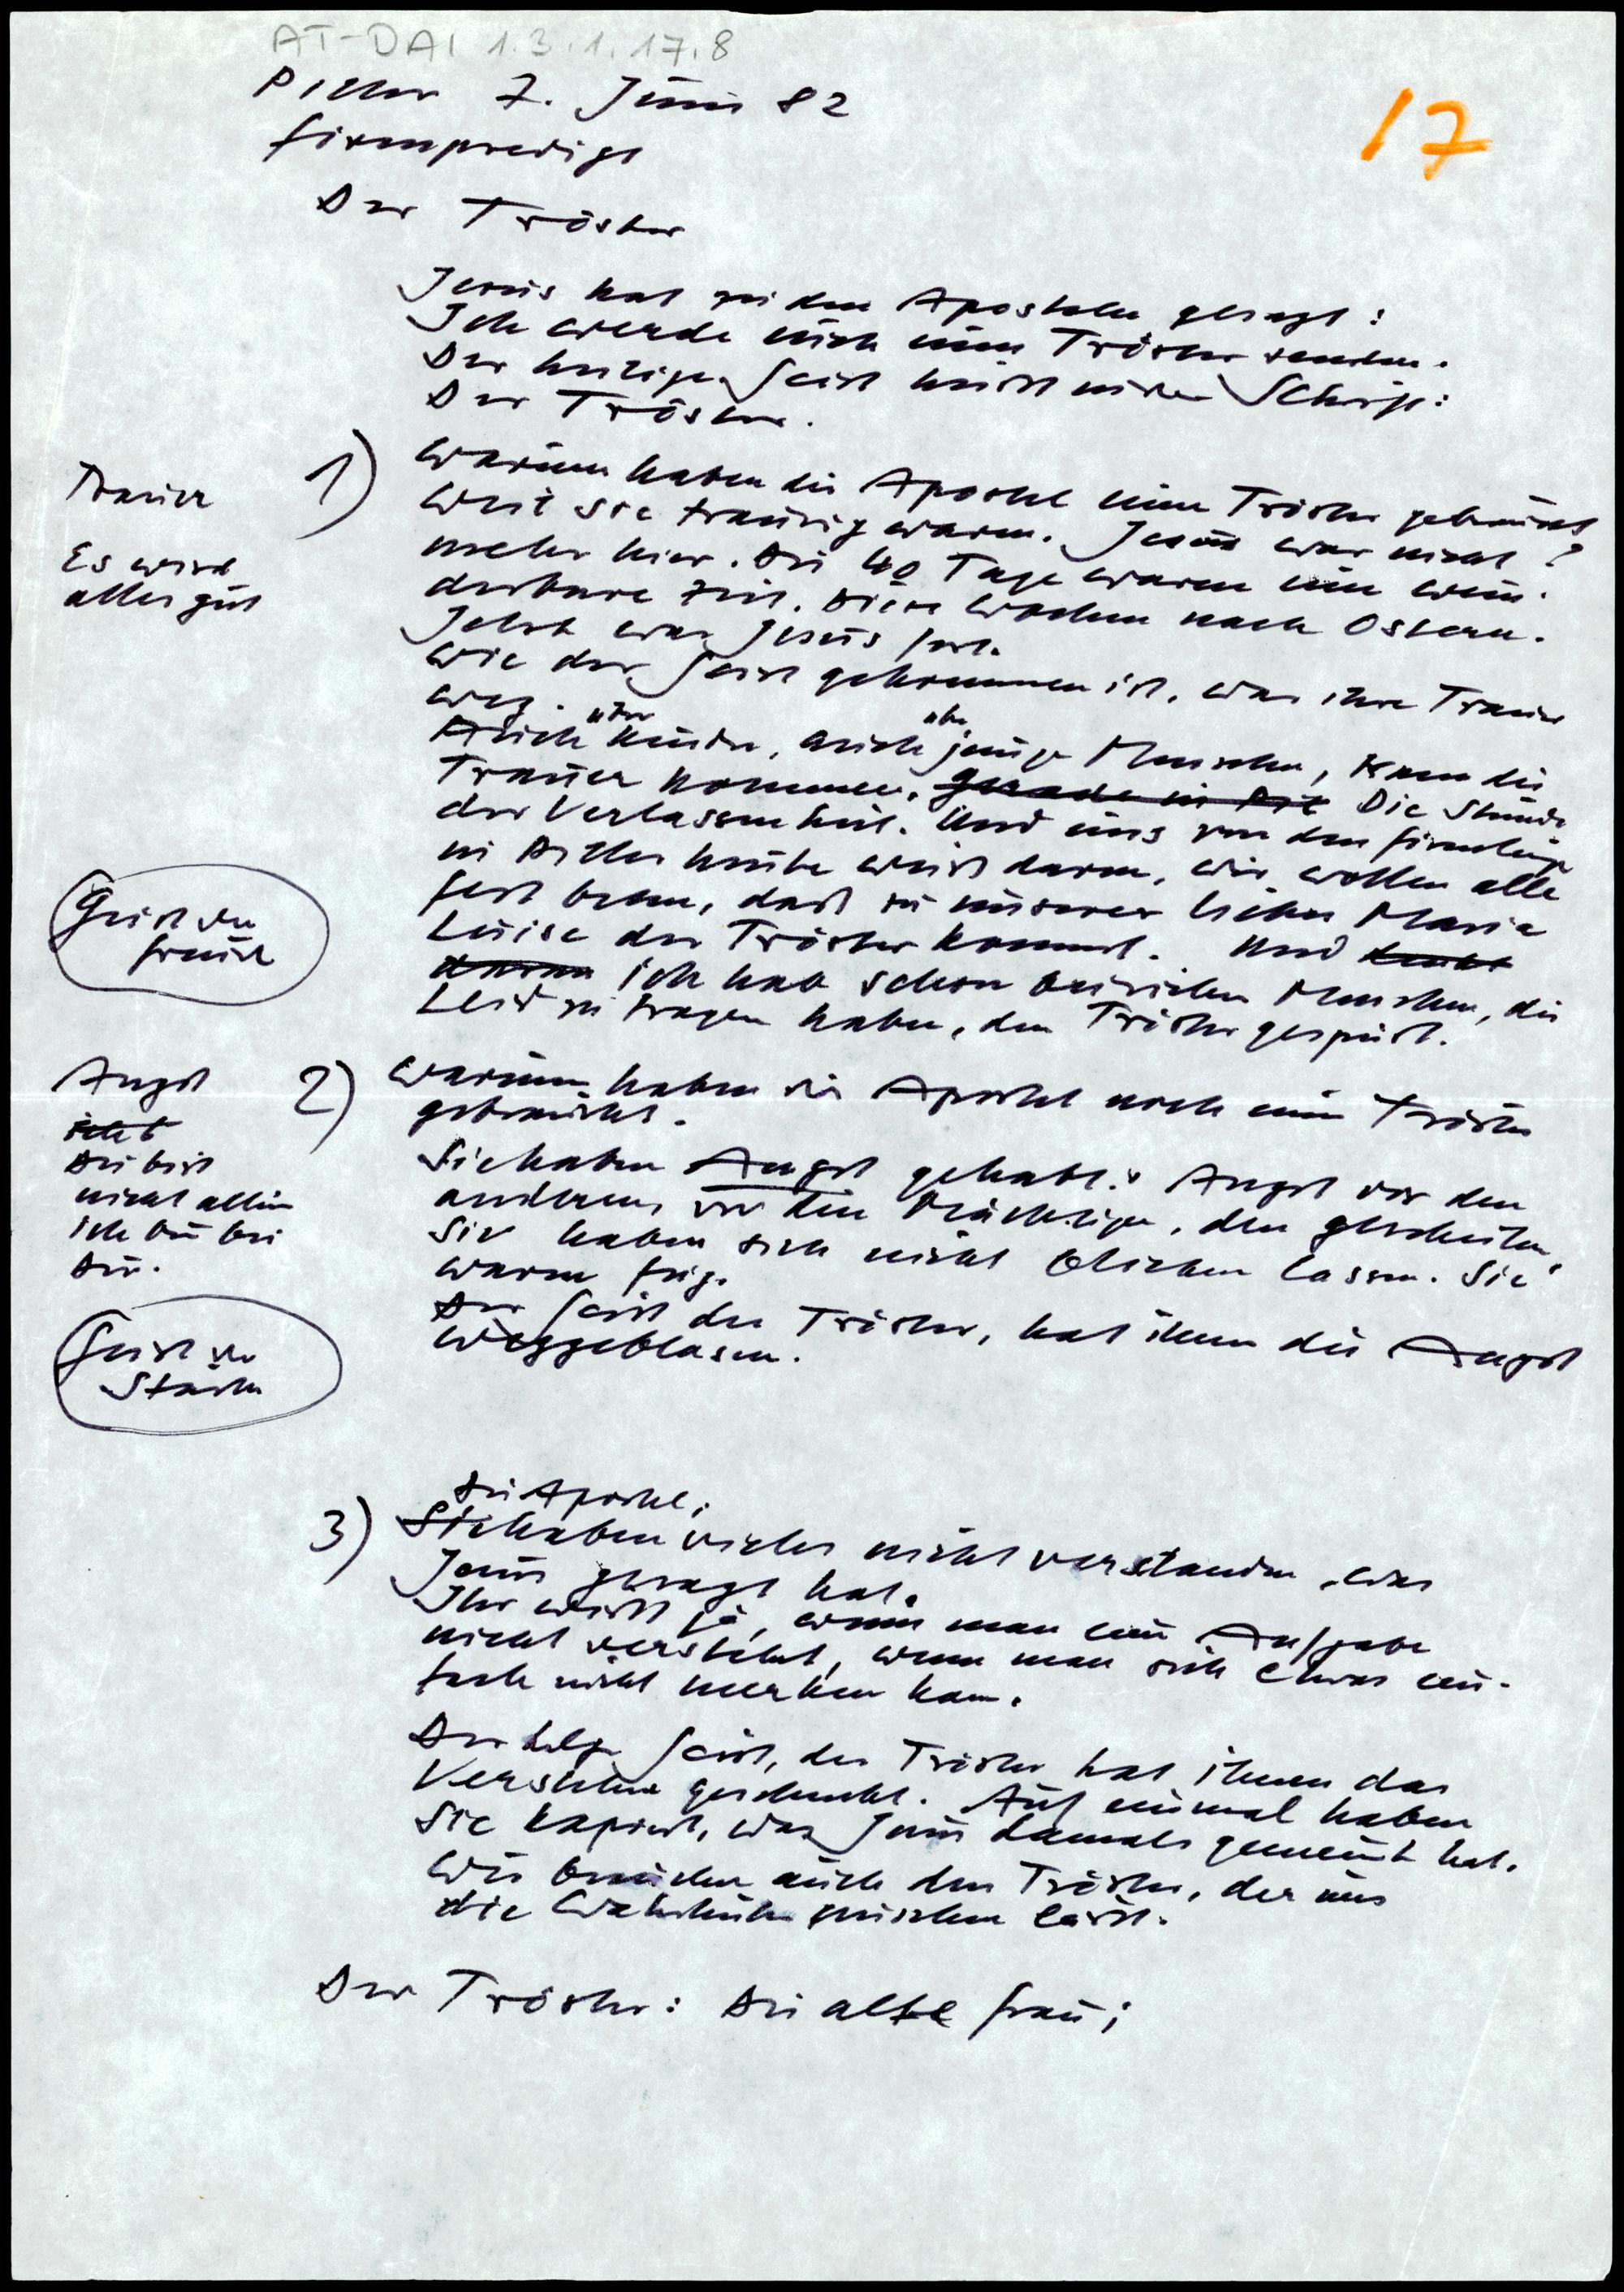 AT-DAI 1.3.1.17.8
17
Piller 7. Juni 82
Firmpredigt
Der Tröster
Jesus hat zu den Aposteln gesagt:
Ich werde euch einen Tröster senden.
Der heilige Geist heißt in der Schrift:
Der Tröster.
Trauer
Es wird
alles gut
1) Warum haben die Apostel einen Tröster gebraucht?
Weil sie traurig waren. Jesus war nicht
mehr hier. Die 40 Tage waren eine wun-
derbare Zeit. Diese Wochen nach Ostern.
Jetzt war Jesus fort.
Wie der Geist gekommen ist, war ihre Trauer
weg.
Auch über Kinder, auch über junge Menschen, kann die
Trauer kommen, gerade in die Die Stunde
der Verlassenheit. Und uns von den Firmlingen
in Piller heute weiß darum, wir wollen alle
fest beten, daß zu unserer lieben Maria
Luise der Tröster kommt. Und denkt
daran ich hab schon bei vielen Menschen, die
Leid zu tragen haben, den Tröster gespürt.
Geist der
Freude
Angst
Du bist
nicht allein
ich bin bei
Dir.
2) Warum haben die Apostel noch einen Tröster
gebraucht.
Sie haben Angst gehabt. Angst vor den
anderen, vor den Mächtigen, den gescheiten,
Sie haben sich nicht blicken lassen. Sie
waren feig.
Der Geist der Tröster, hat ihnen die Angst
weggeblasen.
Geist der
Stärke
Die Apostel,
3) Sie haben vieles nicht verstanden, was
Jesus gesagt hat.
Ihr wißt ja, wenn man eine Aufgabe
nicht versteht, wenn man sich etwas ein-
fach nicht merken kann.
Der hlg. Geist, der Tröster hat ihnen das
Verstehen geschenkt. Auf einmal haben
Sie kapiert, was Jesus damals gemeint hat.
Wir brauchen auch den Tröster, der uns
die Wahrheiten läßt.
Der Tröster: Die alte Frau;